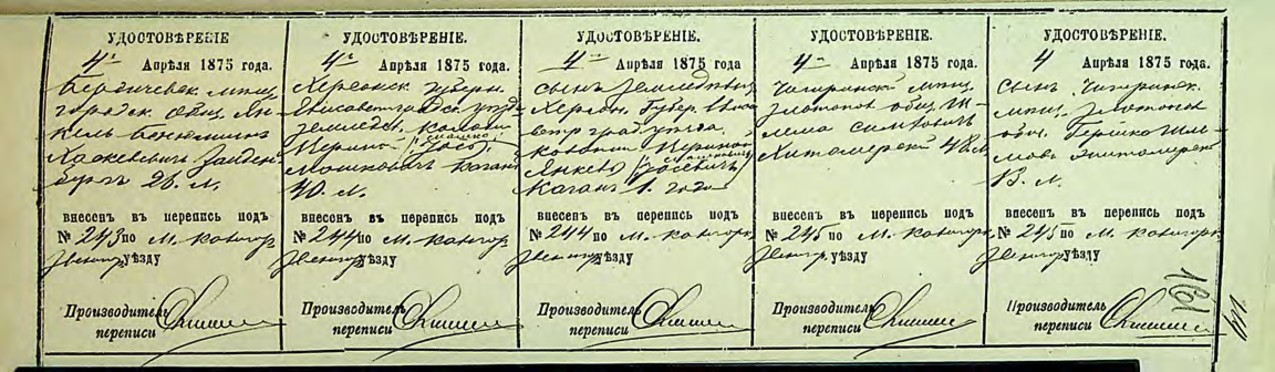 УДОСТОВѢРЕНІЕ
4го Апрѣля 1875 года.
Бердичевск. мѣщ.
городск. общ. Ян-
кель
Хаскелевичъ Зайден-
бургъ 26. л.
внесенъ въ перепись подъ
№ 243 по м. Кальигор
Звениг. уѣзду
Производитель
переписи
УДОСТОВѢРЕНІЕ.
4го Апрѣля 1875 года.
Херсонск. губерн.
Елисаветградск. уѣзда
земледѣл. колоніи
Іось
Мошковичъ Каганъ
40. л.
внесенъ въ перепись подъ
№ 244 по м. Кальигор
Звениг. уѣзду
Производитель
переписи
УДОСТОВѢРЕНІЕ.
4го Апрѣля 1875 года
сынъ земледѣльц.
Херсон. губер. Елиса
ветрград. уѣзда.
колоніи
Янкель Іосевичъ
Каганъ 1. года
внесенъ въ перепись подъ
№ 244 по м. Кальигор
Звениг. уѣзду
Производитель
переписи
УДОСТОВѢРЕНІЕ.
4го Апрѣля 1875 года.
Чигиринск. мѣщ.
Златопол. общ. Ш-
лема Симховичъ
Житомерскій 48 л.
внесенъ въ перепись подъ
№ 245 по м. Кальигорк
Звениг. уѣзду
Производитель
переписи
УДОСТОВѢРЕНІЕ.
4 Апрѣля 1875 года.
сынъ Чигиринск.
мѣщ. Златопол.
общ. Гершко Шле-
мовъ Житомерскі
13. л.
внесенъ въ перепись подъ
№ 245 по м. Кальигорк
Звениг. уѣзду
Производитель
переписи
161